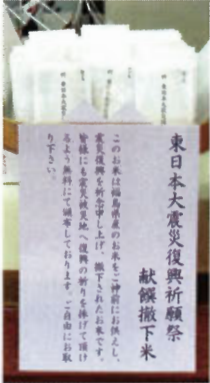 東日本大震災復興祈願祭
献饌撤下米
このお米は福島県産のお米をご神前にお供えし、
震災復興を祈念申し上げ、撤下されたお米です。
皆様にも震災被災地へ復興の祈りを捧げて頂け
るよう無料にて頒布しております。ご自由にお取
り下さい。